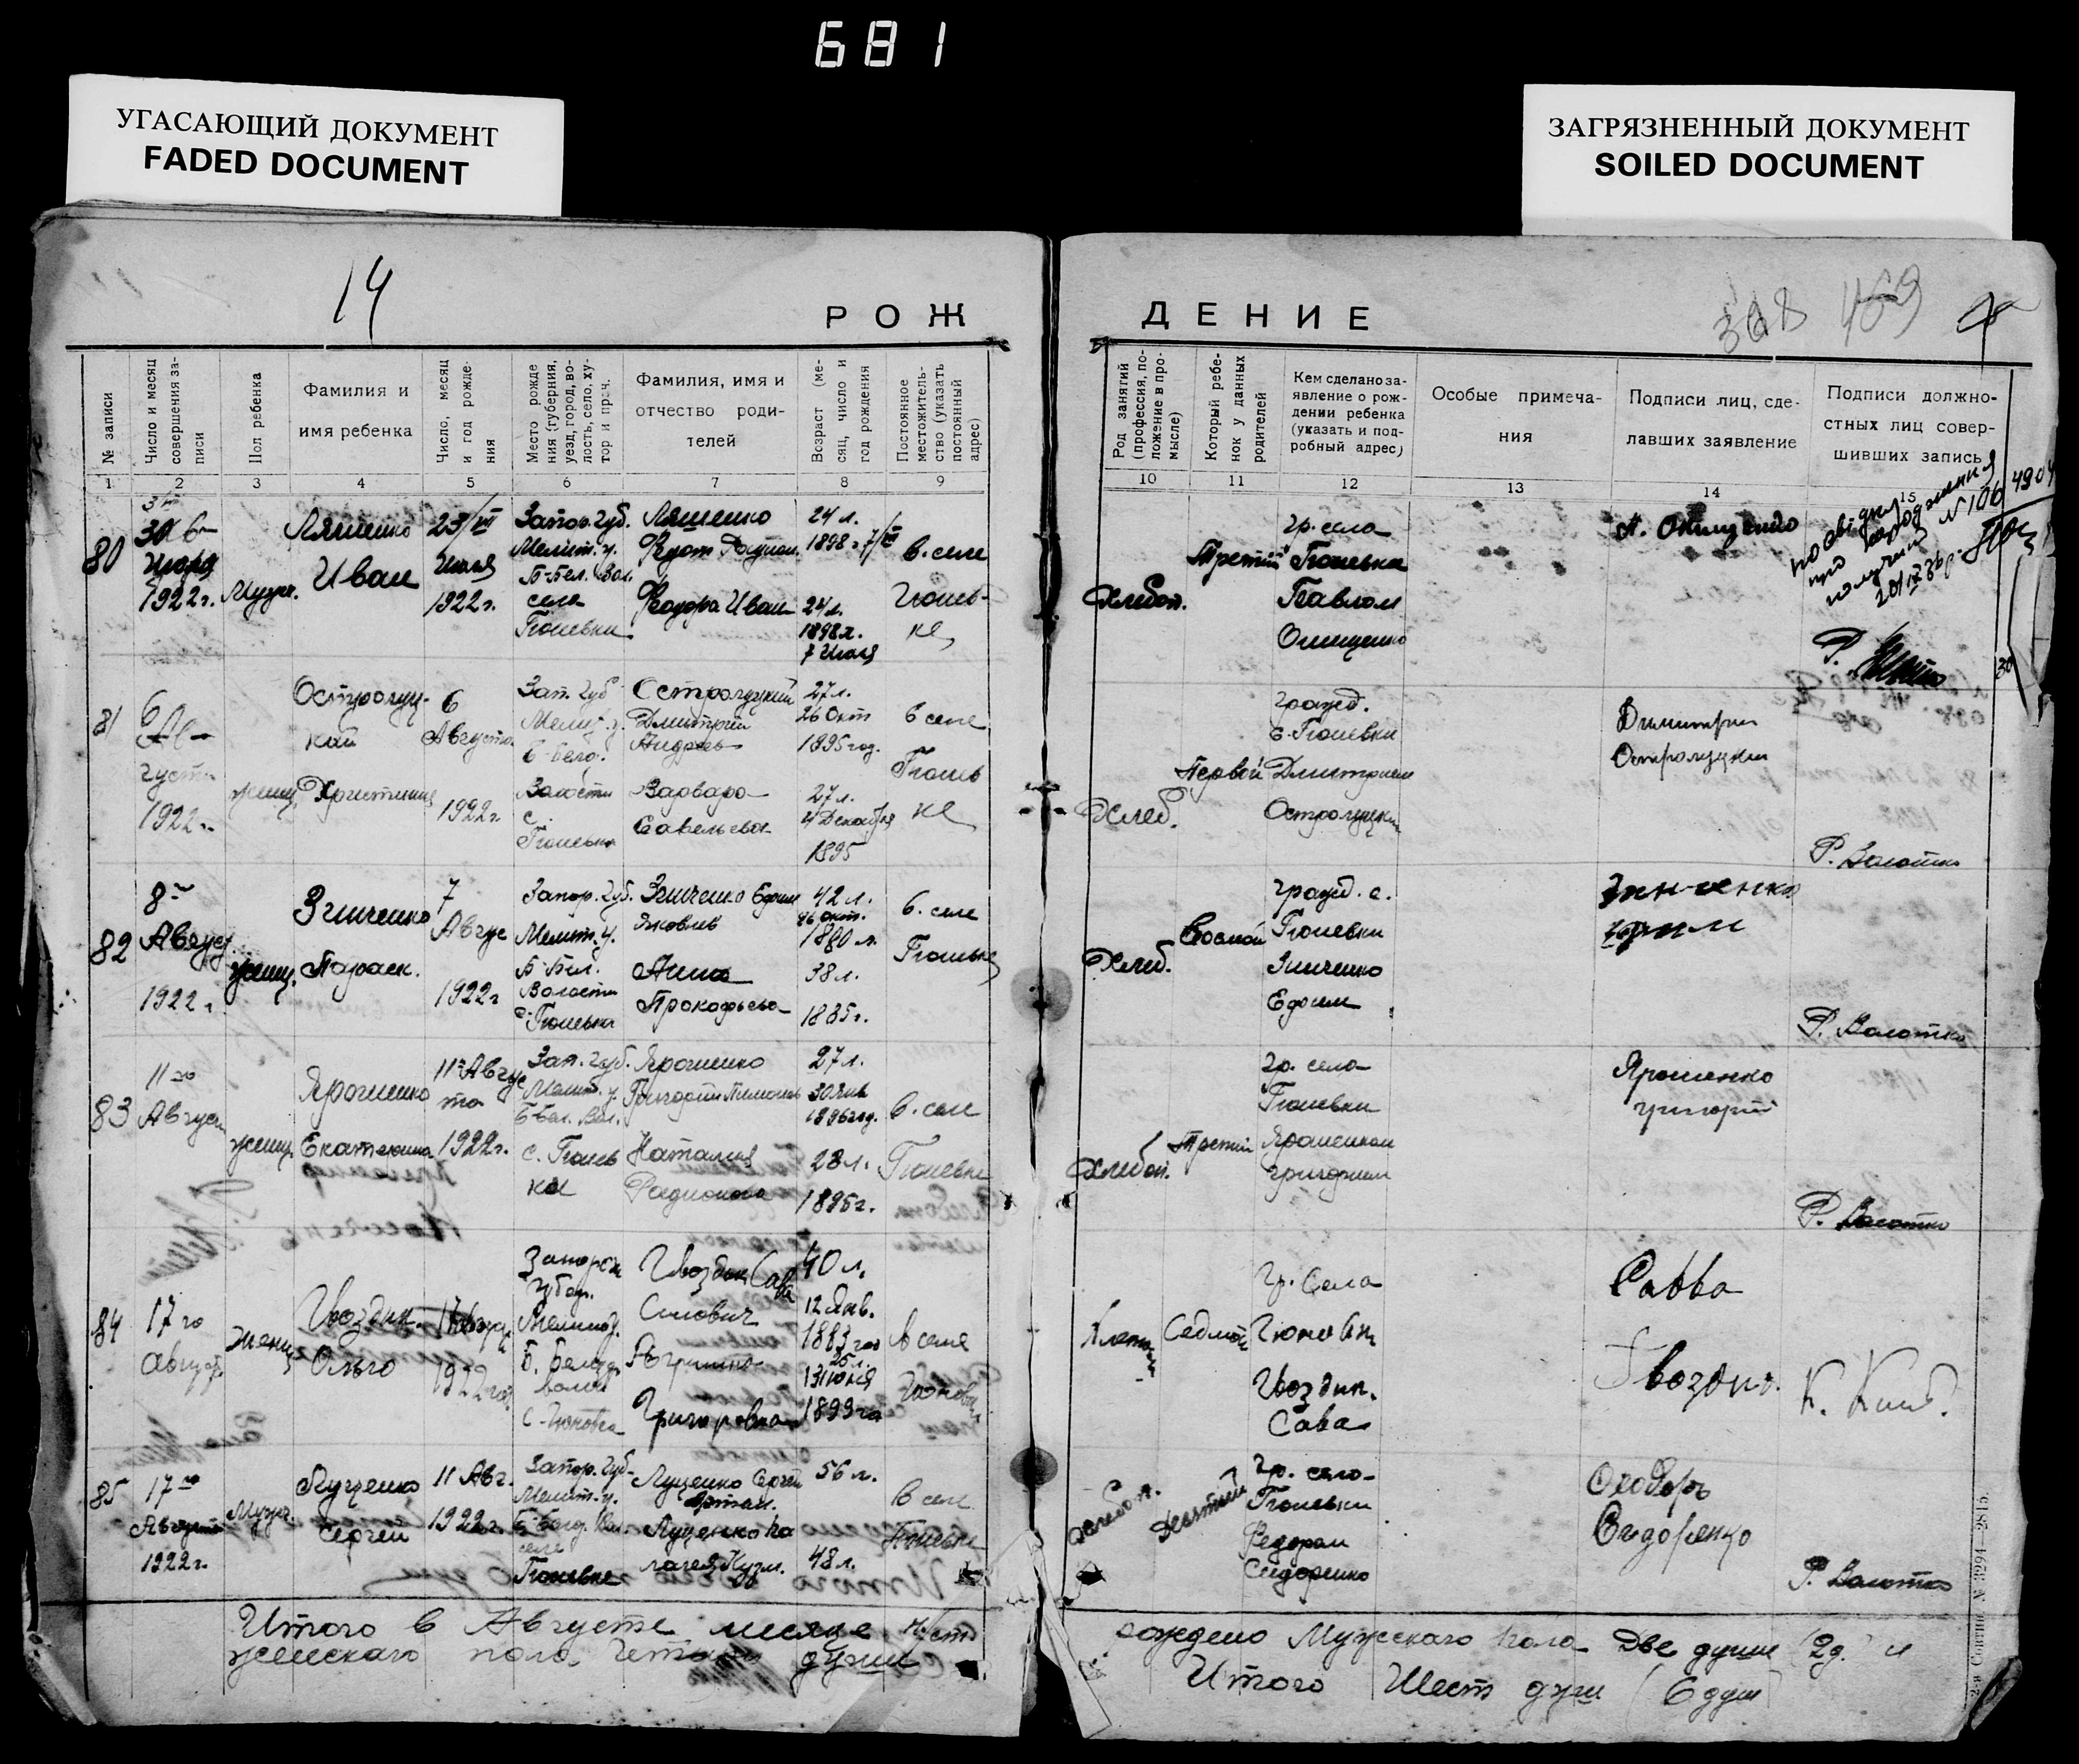 681
УГАСАЮЩИЙ ДОКУМЕНТ
FADED DOCUMENT
ЗАГРЯЗНЕННЫЙ ДОКУМЕНТ
SOILED DOCUMENT
14
РОЖДЕНИЕ
№ записи
Число и месяц
совершения за-
писи
Пол ребенка
Фамилия и
имя ребенка
Число, месяц
и год рожде-
ния
Место рожде
ния (губерния,
уезд, город, во-
лость, село, ху-
тор и проч.
Фамилия, имя и
отчество роди-
телей
Возраст (ме-
сяц, число и
год рождения
Постоянное
местожитель-
ство (указать
постоянный
адрес)
Род занятий
(профессия, по-
ложение в про-
мысле)
Который ребе-
нок у данных
родителей
Кем сделано за-
явление о рож-
дении ребенка
(указать и под-
робный адрес)
Особые примеча-
ния
Подписи лиц, сде-
лавших заявление
Подписи должно-
стных лиц совер-
шивших запись
1 2 3 4 5 6 7 8 9 10 11 12 13 14 15
80
1922 г.
Мужч.
Ляшенко
Иван
23/VII
Июля
1922 г.
Запор. Губ.
Мелит. у.
Б-Бел. Вол.
село
Тюневка
Ляшенко
Иван
24 л.
1898 г.
24 л.
1898 г.
7 Июля
в. селе
Тюнев-
ке
Хлебоп.
Третий
гр. села
Тюневка
Павлом
Онищенко
Онищенко
81
6
Ав-
густа
1922 г.
женщ.
Остролуц-
кай
Христина
6
Августа
1922 г.
Зап. Губ
Мелит. у.
Б-Бело.
Волости
с.
Тюневка
Остролуцкий
Дмитрий
Андреев
Варвара
Савельева
27 л.
26 Окт
1895 год.
27 л.
4 Декабря
1895
в селе
Тюнев
ке
Хлеб.
Первой
гражд.
с. Тюневки
Дмитрием
Остролуцким
Димитрий
Остролуцкий
Р. Волотко
82
8
Август
1922 г.
женщ.
Зинченко
Параск.
7
Авгус
1922 г
Запор. Губ.
Мелит. у.
Б-Бел.
Волости
с. Тюневка
Зинченко Ефим
Яковлев
Анна
Прокофьева
42 л.
26 Окт.
1880 г.
38 л.
1885 г.
в. селе
Тюневке
Хлеб.
Восмой
гражд. с.
Тюневки
Зинченко
Ефим
Зинченко
Р. Волотко
83
11 го
Август
женщ.
Ярошенко
Екатерина
11 Авгус
та
1922 г.
Зап. Губ.
Мелит. у.
Б Бел. Вол.
с. Тюнев
ка
Ярошенко
Григорий
Наталия
Радионова
27 л.
1896 год.
28 л.
1895 г.
в. селе
Тюневке
Хлебоп.
Третий
гр. села
Тюневки
Ярошенком
Григорием
Ярошенко
григорий
Р. Волотко
84
17 го
август.
женщ
Гвоздик.
Ольга
1922 год.
Запорож
губер.
Мелитоп.
Б. Белоз.
волост
с. Тюновка
Гвоздик Сава
Григоровна
40 л.
12 Янв.
1883 год
25 л.
13 Июля
1899 го
в селе
Седмой
Гр. Села
Гвоздик.
Сава
Савва
Гвоздик.
85
17 го
Августа
1922 г.
Мужч.
Луценко
Сергей
11 Авг.
1922 г.
Запор. Губ.
Мелит. у.
Б-Белоз. Вол.
селе
Тюневке
Луценко Сергей
Луценко Па
лагея Кузм.
56 л.
48 л.
в селе
Тюневке
Хлебоп.
Десятый
Гр. село
Тюневки
Федором
Сидоренко
Ѳеодоръ
Сидоренко
Р. Волотко
Итого в Августе месяце рождено Мужскаго пола Две души (2 д.) и
женскаго пола Четыри души Итого Шест душ (6 душ)
2-я Соятип. № 3294—2815.